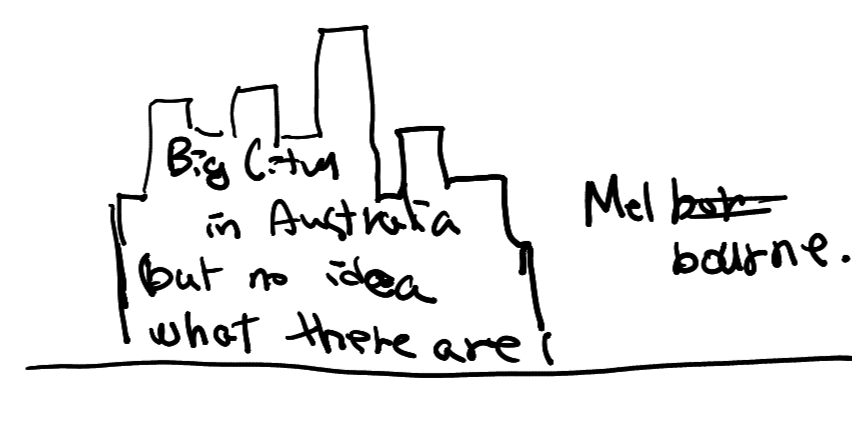 Big City
in Australia
but no idea
what there are
Mel
bourne.